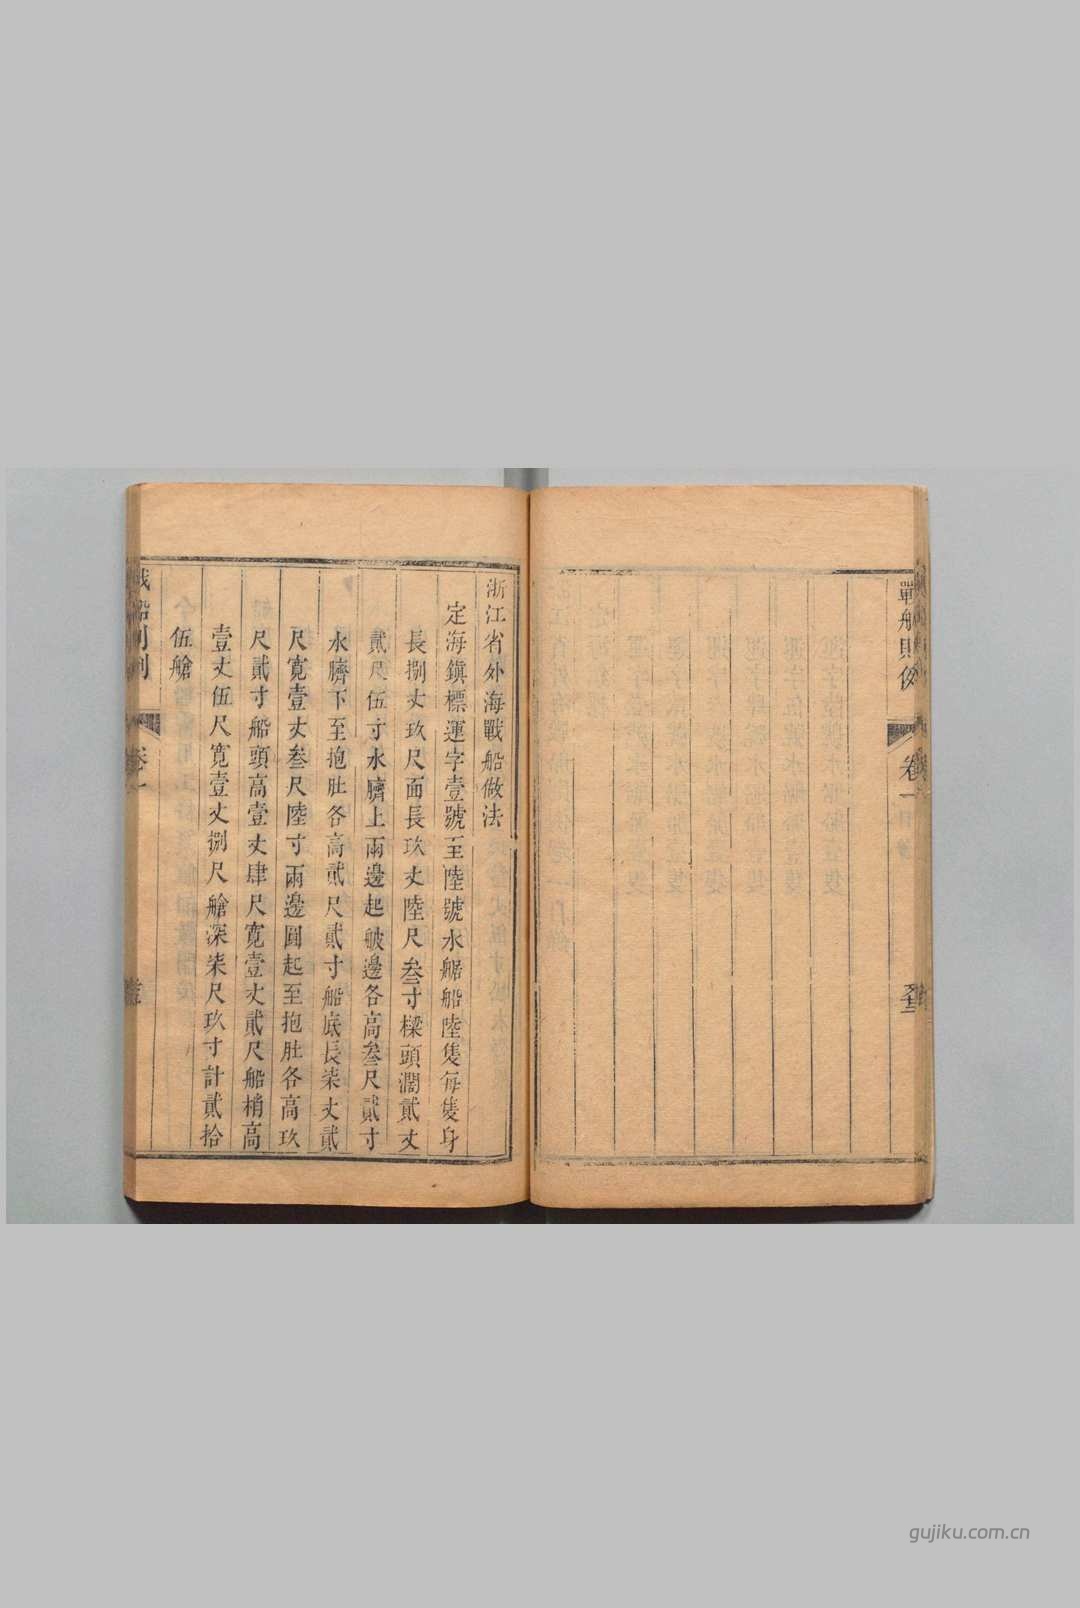 戰船則
卷一
浙江省外海戰船做法
定海鎮標運字壹號至陸號水艍船陸隻每隻身
長捌丈玖尺面長玖丈陸尺叁寸樑頭濶貳丈
貳尺伍寸水臍上兩邊起舭邊各高叁尺貳寸
水臍下至抱肚各高貳尺貳寸船底長柒丈貳
尺寬壹丈叁尺陸寸兩邊圓起至抱肚各高玖
尺貳寸船頭高壹丈肆尺寬壹丈貳尺船梢高
壹丈伍尺寬壹丈捌尺艙深柒尺玖寸計貳拾
伍艙
戰船則例
卷一
gujiku.com.cn